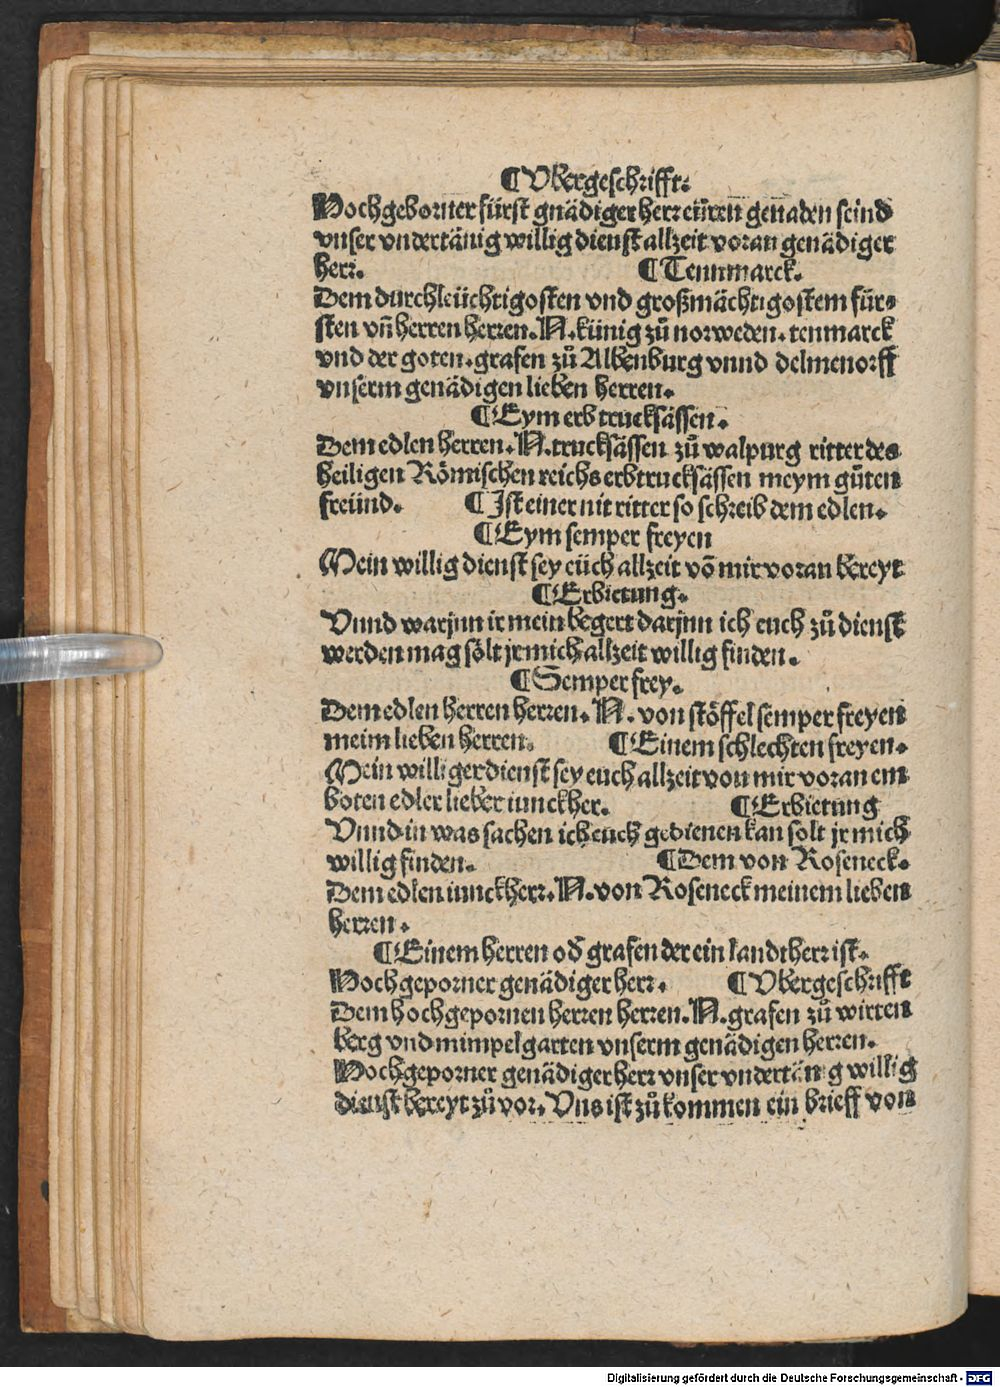 ¶ Vbergeschrifft.
Hochgeborner fürst gnädiger herr eüren genaden seind
vnser vndertänig willig dienst allzeit voran genädiger
herr. ¶ Tennmarck.
Dem durchleüchtigosten vnd großmächtigostem für⸗
sten vñ herren herren. N. künig zů norweden. tenmarck
vnd der goten. grafen zů Albenburg vnnd delmenorff
vnserm genädigen lieben herren.
¶ Eym erb trucksässen.
Dem edlen herren. N. trucksässen zů walpurg ritter des
heiligen Römischen reichs erbtrucksässen meym gůten
freünd. ¶ Ist einer nit ritter so schreib dem edlen.
¶ Eym semper freyen
Mein willig dienst sey eüch allzeit võ mir voran bereyt
¶ Erbietung.
Vnnd warjnn ir mein begert darjnn ich euch zů dienst
werden mag sölt jr mich allzeit willig finden.
¶ Semper frey.
Dem edlen herren herren. N. von stöffel semper freyen
meim lieben herren. ¶ Einem schlechten freyen.
Mein williger dienst sey euch allzeit von mir voran em
boten edler lieber iunckher. ¶ Erbietung
Vnnd in was sachen ich euch gedienen kan solt jr mich
willig finden. ¶ Dem von Roseneck.
Dem edlen iunckherr. N. von Roseneck meinem lieben
herren.
¶ Einem herren od̕ grafen der ein landtherr ist.
Hochgeporner genädiger herr. ¶ Vbergeschrifft
Dem hochgepornen herren herren. N. grafen zů wirten
berg vnd mimpelgarten vnserm genädigen herren.
Hochgeporner genädiger herr vnser vndertänig willig
dienst bereyt zů vor. Vns ist zů kommen ein brieff von
Digitalisierung gefördert durch die Deutsche Forschungsgemeinschaft - DFG